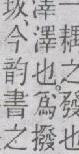 一耦之發也
澤澤也。為撥
坺、今韵書之